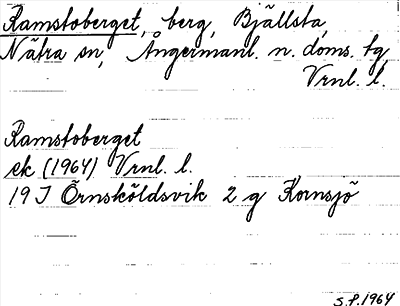 Ramstoberget, berg, Bjällsta,
Nätra sn, Ångermanl. n. doms. tg,
Vrnl. l.
Ramstoberget
ek (1964) Vrnl. l.
19 J Örnsköldsvik 2 g Kornsjö
S.P. 1964